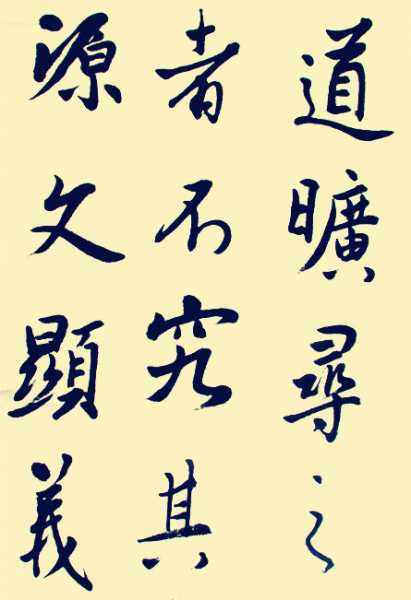 道曠尋之
者不究其
源文顯義